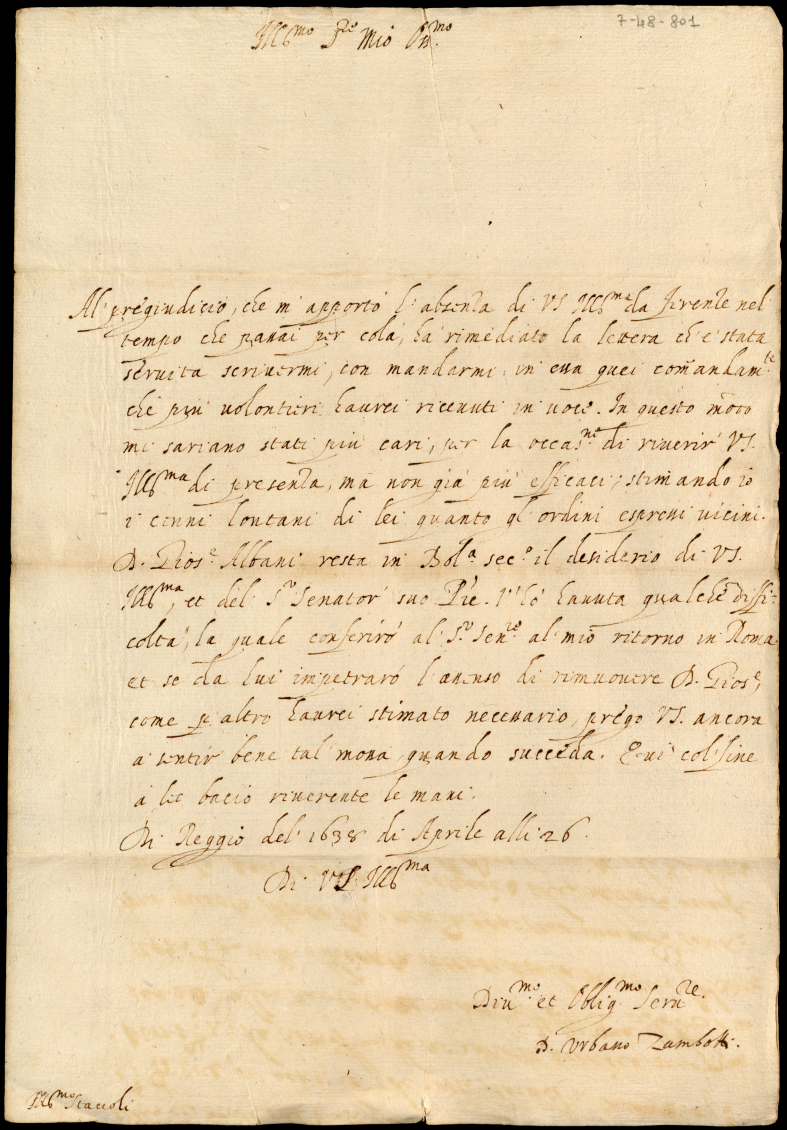 7-48-801
Ill.mo S.re Mio On.mo
Al pregiudicio, che m'apportò l'absenza di VS Ill.ma da Firenze nel
tempo che passai per colà, hà rimediato la lettera ch'è stata
servita scrivermi, con mandarmi in essa quei comandam.ti
che più volontieri haurei riceuuti in uoce. In questo modo
mi sariano stati più cari, per la occas.ne di riuerir VS.
Ill.ma di presenza, mà non già più efficaci; stimando io
i cenni lontani di lei quanto gl'ordini espressi uicini.
D. Gios.e Albani resta in Bol.a sec.o il desiderio di VS.
Ill.ma, et del S.r Senator suo P̃re. V'hò hauuta qualche diffi-
coltà, la quale conferirò al S.r Sen.re al mio ritorno in Roma
et se da lui impetrarò l'assenso di rimuouere D. Gios.e,
come p altro haurei stimato necessario, prego VS. ancora
a sentir bene tal mossa, quando succeda. E qui col fine
à lei bacio riuerente le mani.
Di Reggio del 1638 di Aprile alli 26.
Di VS. Ill.ma
Diu.mo et Oblig.mo Seru.re.
D. Urbano Zambotti.
Ill.mo Staccoli